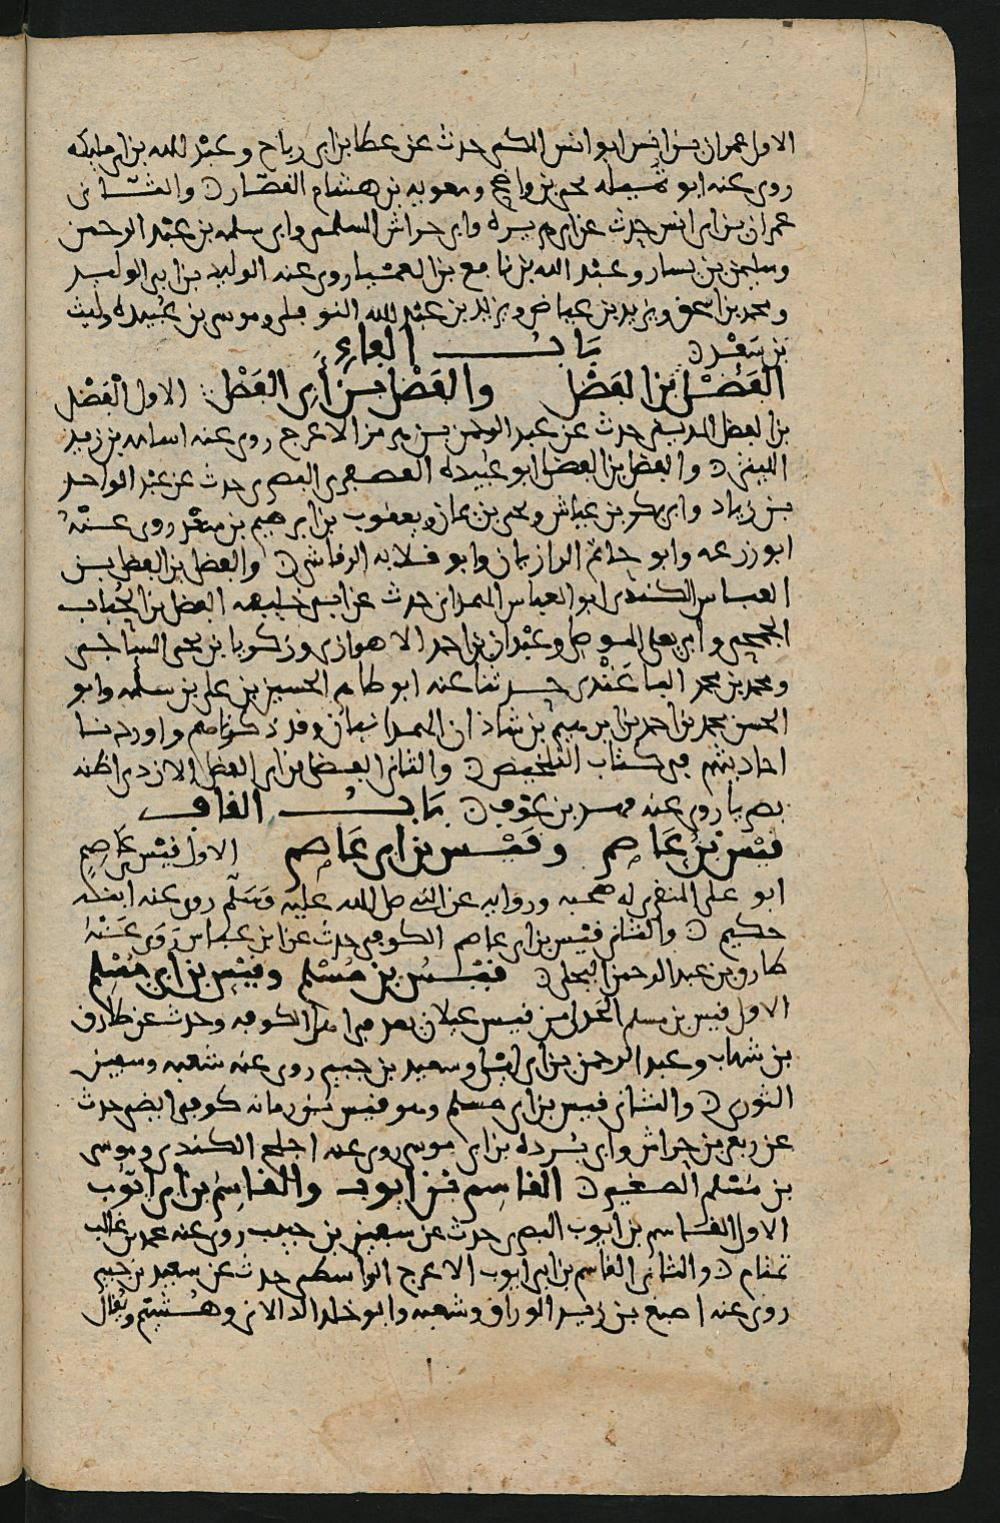 الاول عمران بن انس ابو انس المكي حدث عن عطا بن ابي رباح وعبد الله بن ابي مليكه
روى عنه ابو تميله يحيى بن واضح ومعويه بن هشام القصار والثاني
عمران بن ابي انس حدث عن ابي هريره وابي خراش السلمي وابي سلمه بن عبد الرحمن
وسليمن بن يسار وعبد الله بن نافع بن العميا روى عنه الوليد بن ابي الوليد
ومحمد بن اسحق ويزيد بن عياض ويزيد بن عبد الله النوفلي وموسى بن عبيده وليث
بن سعد باب الفاء
الفضل بن الفضل والفضل بن ابي الفضل الاول الفضل
بن الفضل المديني حدث عن عبد الرحمن بن هرمز الاعرج روى عنه اسامه بن زيد
الليثي والفضل بن الفضل ابو عبيده البصري حدث عن عبد الواحد
بن زياد وابي بكر بن عياش ويحيى بن يمان ويعقوب بن ابرهيم بن سعد روى عنه
ابو زرعه وابو حاتم الرازيان وابو قلابه الرقاشي والفضل بن الفضل بن
العباس الكندي ابو العباس الهمداني حدث عن ابي خليفه الفضل بن الحباب
الجمحي وابي يعلى الموصلي وعبدان بن احمد الاهوازي وزكريا بن يحيى الساجي
ومحمد بن محمد الباغندي حدثنا عنه ابو طاهر الحسين بن علي بن سلمه وابو
الحسن محمد بن احمد بن ابرهيم بن شاذان الهمدانيان وقد ذكرناهم واوردنا
احاديثهم في كتاب التلخيص والثاني الفضل بن ابي الفضل الازدي اظنه
بصريا روى عنه محمد بن عوف باب القاف
قيس بن عاصم وقيس بن ابي عاصم الاول قيس بن عاصم
ابو علي المنقري له صحبه وروايه عن النبي صلى الله عليه وسلم روى عنه ابنه
حكيم والثاني قيس بن ابي عاصم الكوفي حدث عن ابن عباس روى عنه
طارق بن عبد الرحمن البجلي قيس بن مسلم وقيس بن ابي مسلم
الاول قيس بن مسلم الجدلي من قيس عيلان يعد في اهل الكوفه وحدث عن طارق
بن شهاب وعبد الرحمن بن ابي ليلى وسعيد بن جبير روى عنه شعبه وسفين
الثوري والثاني قيس بن ابي مسلم وهو قيس بن رمانه كوفي ايضا حدث
عن ربعي بن حراش وابي برده بن ابي موسى روى عنه اجلح الكندي وموسى
بن مسلم الصغير القاسم بن ايوب والقاسم بن ابي ايوب
الاول القاسم بن ايوب البصري حدث عن سفين بن حبيب روى عنه محمد بن غالب
تمتام والثاني القاسم بن ابي ايوب الاعرج الواسطي حدث عن سعيد بن جبير
روى عنه اصبغ بن زيد الوراق وشعبه وابو خالد الدالاني وهشيم ويقال